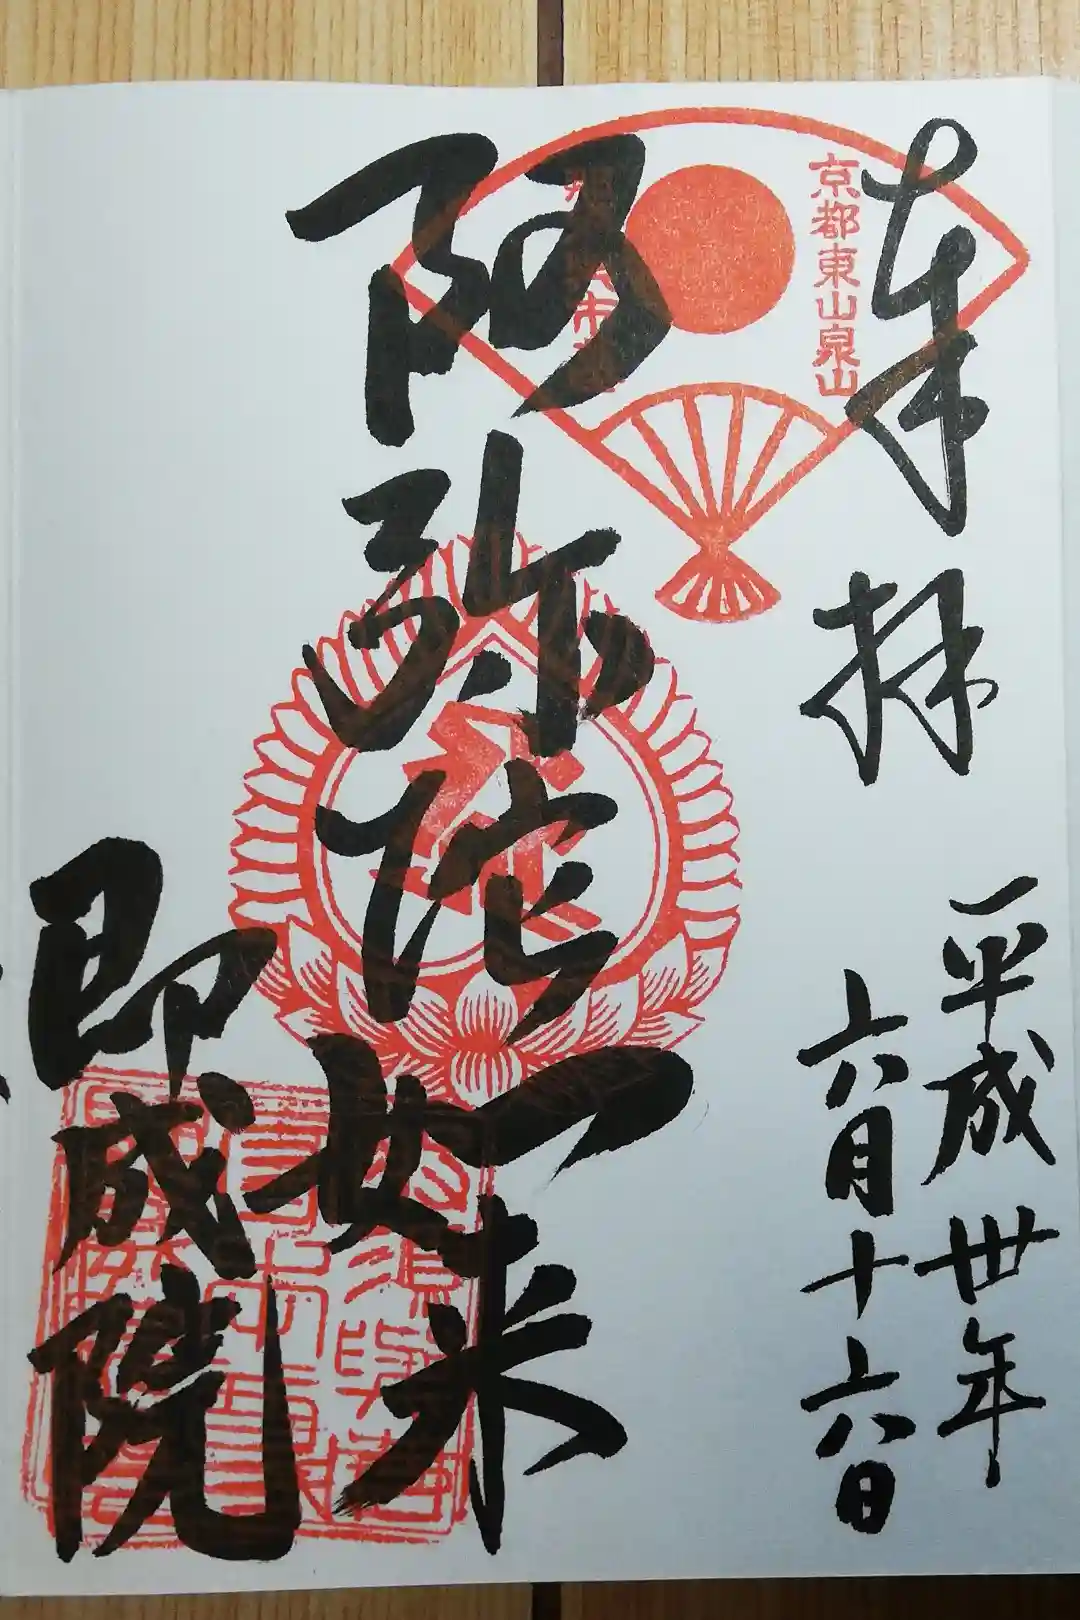 奉拝
平成卅年
六月十六日
京都東山泉山
阿弥陀如来
即成院